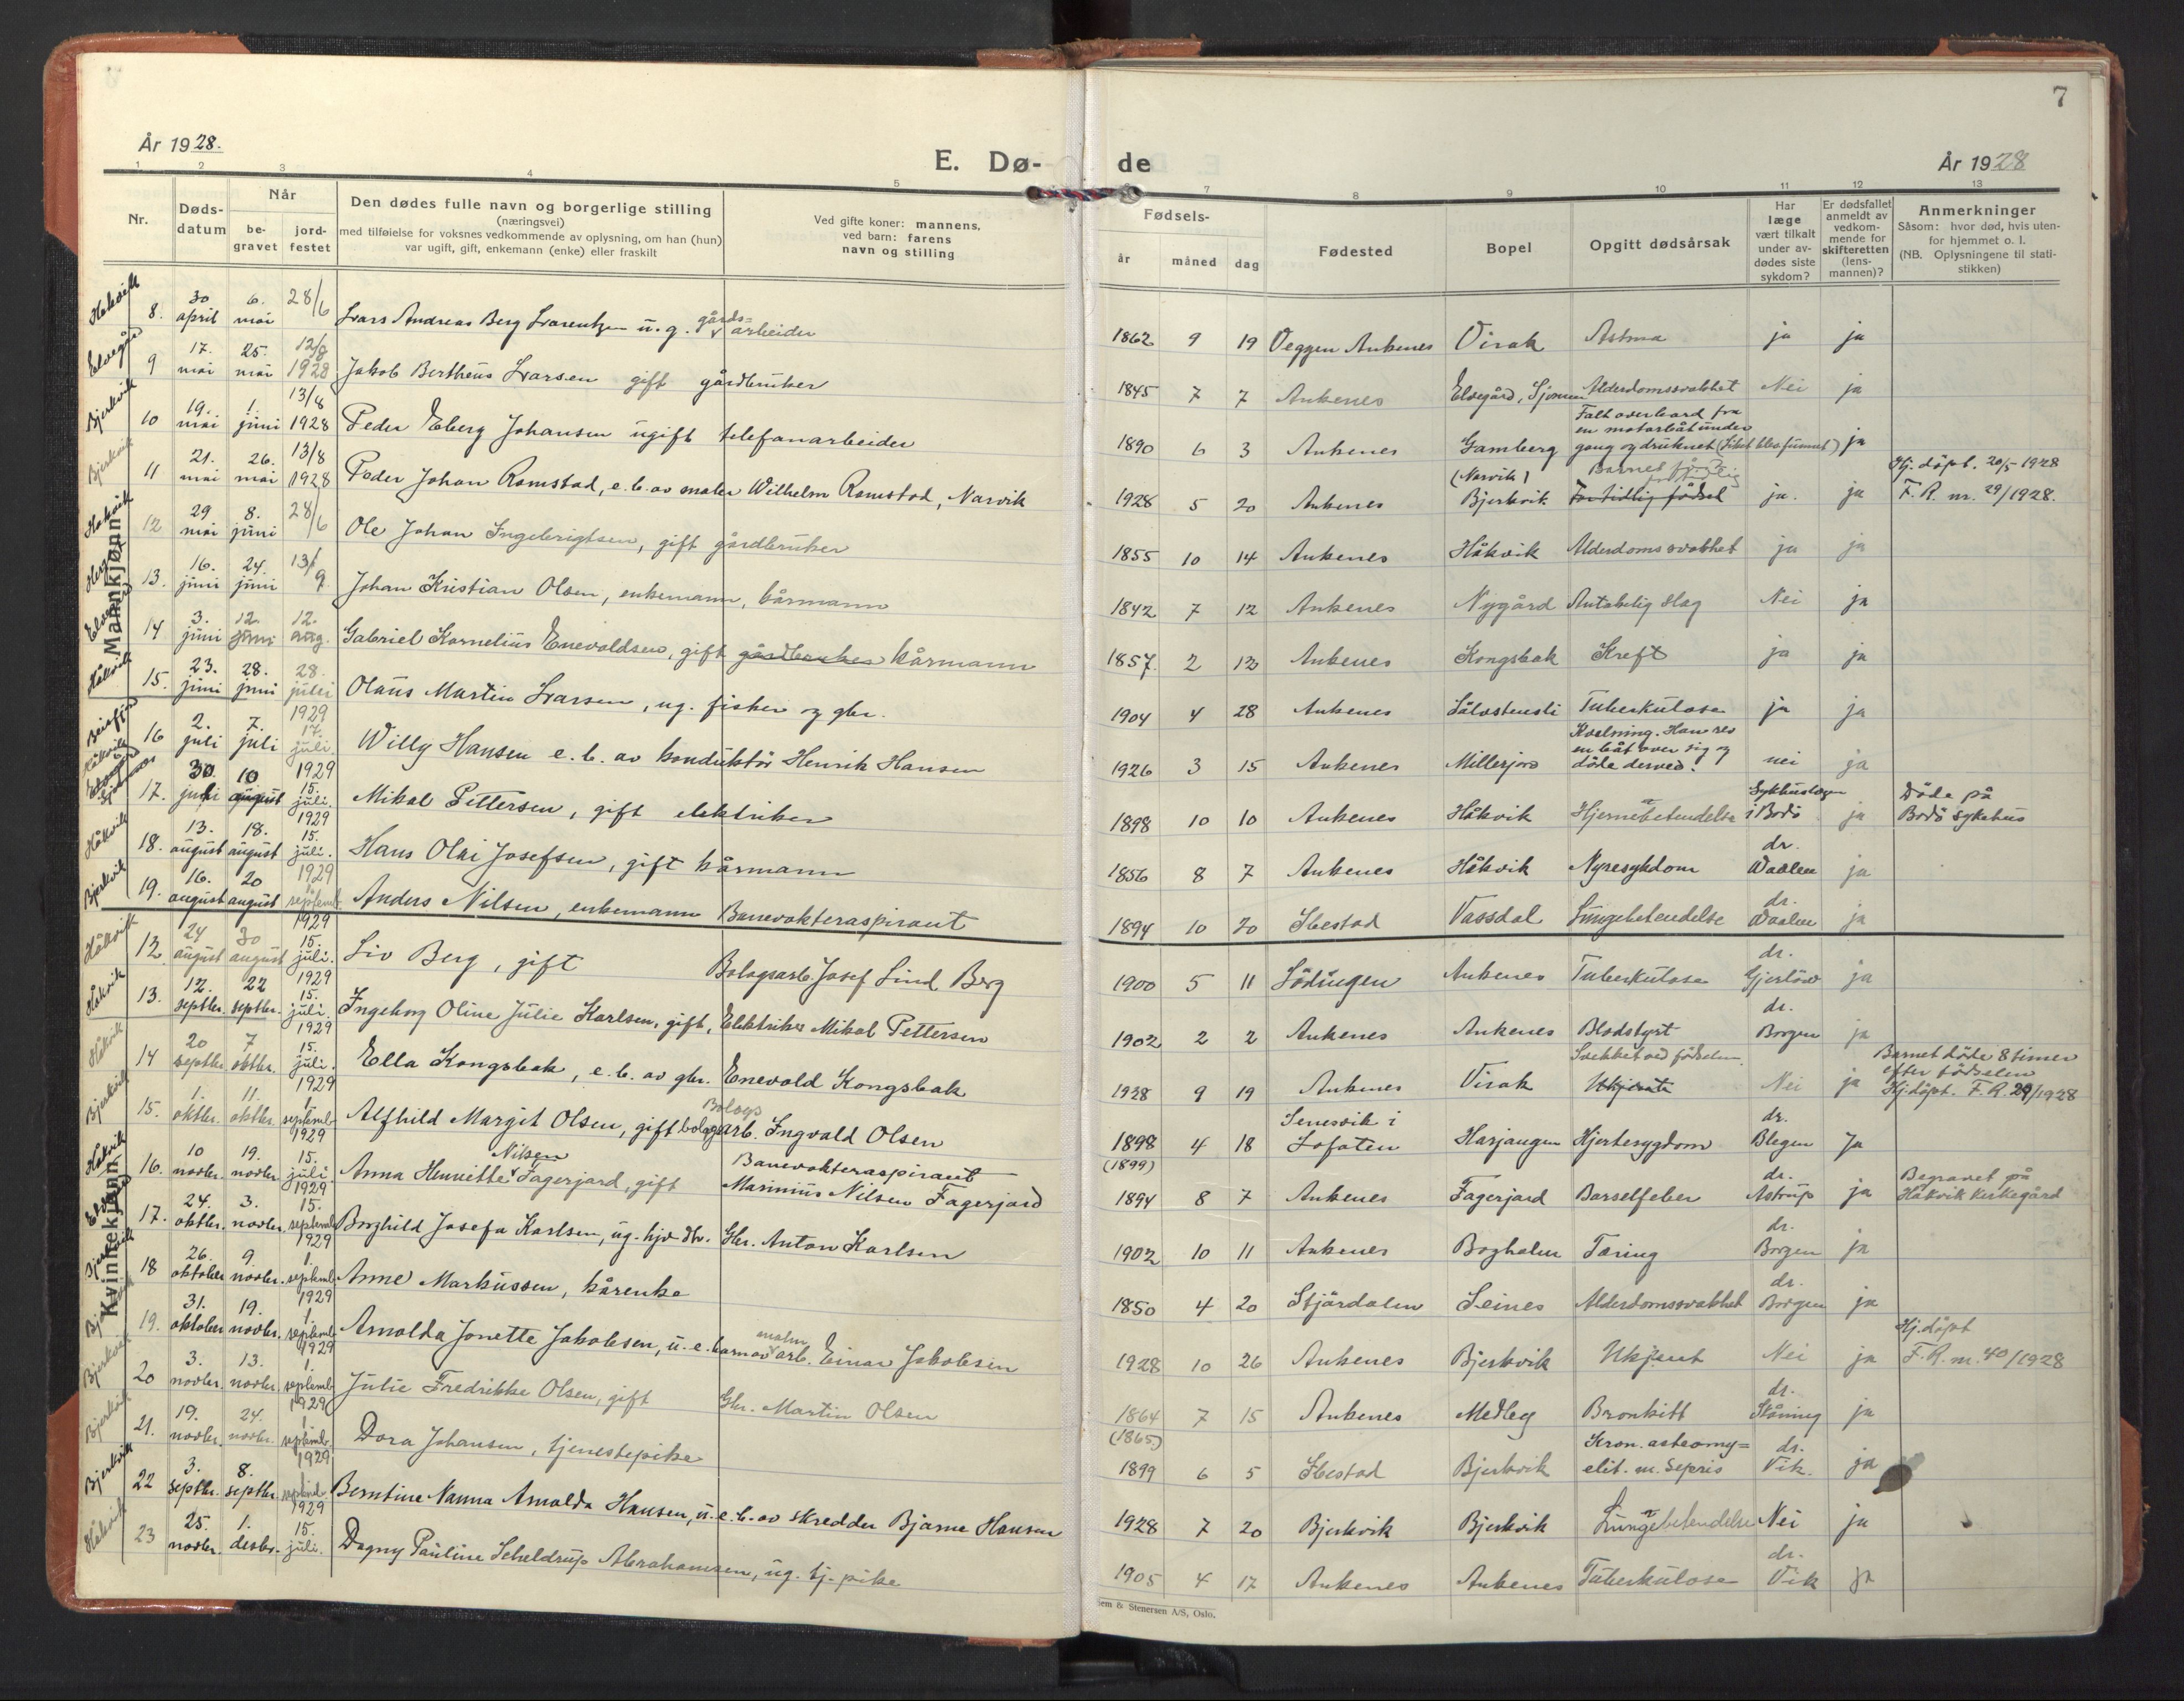 7
År 1928.
E. Dø-
de
År 1928
1 2 3 4 5 7 8 9 10 11 12 13
Nr.
Døds-
datum
Når
be-
gravet
jord-
festet
Den dødes fulle navn og borgerlige stilling
(næringsvei)
med tilføielse for voksnes vedkommende av oplysning, om han (hun)
var ugift, gift, enkemann (enke) eller fraskilt
Ved gifte koner: mannens,
ved barn: farens
navn og stilling
Fødsels-
år måned dag
Fødested
Bopel
Opgitt dødsårsak
Har
læge
vært tilkalt
under av-
dødes siste
sykdom?
Er dødsfallet
anmeldt av
vedkom-
mende for
skifteretten
(lens-
mannen)?
Anmerkninger
Såsom: hvor død, hvis uten-
for hjemmet o. l.
(NB. Oplysningene til stati-
stikken)
Mannkjønn
Håkvik 8. 30 april 6. mai 28/6 Lars Andreas Berg Larentzen u. g. gårds= arbeider 1862 9 19 Veggen Ankenes Virak Astma ja ja
Elvegård 9 17. mai 25. mai 12/8 1928 Jakob Bertheus Larsen gift gårdbruker 1845 7 7 Ankenes Elvegård, Alderdomssvakhet Nei ja
Bjerkvik 10 19. mai 1. juni 13/8 1928 Peder Eberg Johansen ugift telefonarbeider 1890 6 3 Ankenes Gamberg Falt overbord fra en motorbåt under gang og druknet (Liket blev funnet) ja
Bjerkvik 11 21. mai 26. mai 13/8 1928 Peder Johan Ramstad, e. b. av maler Wilhelm Ramstad, Narvik 1928 5 20 Ankenes (Narvik) Bjerkvik For tidlig fødsel ja. ja Hj. döpt. 20/5 1928 F. R. nr. 29/1928.
Håkvik 12 29 mai 8. juni 28/6 Ole Johan Ingebrigtsen, gift gårdbruker 1855 10 14 Ankenes Håkvik Alderdomssvakhet ja ja
13. 16. juni 24. juni 13/9 Johan Kristian Olsen, enkemann, kårmann 1842 7 12 Ankenes Nygård Antakelig slag Nei ja
14 3. juni 12. juni 12. aug. Gabriel Kornelius Enevoldsen, gift gårdbruker kårmann 1857. 2 Ankenes Kongsbak Kreft ja ja
Håkvik 15. 23. juni 28. juni 28. juli 1929 Olaus Martin Larsen, ug. fisker og gbr. 1904 4 28 Ankenes Tuberkulose ja ja
Beisfjord 16 2. juli 7. juli 17. juli. 1929 Willy Hansen e. b. av konduktör Henrik Hansen 1926 3 15 Ankenes Millerjord Kvelning. Han rev en båt over sig og döde derved. nei ja
Håkvik 17. 30. juli 10 august 15. juli. 1929 Mikal Pettersen, gift elektriker 1898 10 10 Ankenes Håkvik Hjernebetendelse i Bodö ja Döde på Bodö sykehus
Håkvik 18. 13. august 18. august 15. juli. 1929 Hans Olai Josefsen, gift kårmann 1856 8 7 Ankenes Håkvik Nyresykdom dr. Waalen ja
Bjerkvik 19. 16. august 20 august 1. septemb. 1929 Anders Nilsen, enkemann Banevokteraspirant 1894 10 20 Ibestad Vassdal Lungebetendelse dr. Waalen ja
Kvinnekjønn
Håkvik 12. 24 august 30 august 15. juli. 1929 Liv Berg, gift Bologsarb. Josef Lind Berg 1900 5 11 Lödingen Ankenes Tuberkulose dr. Gjerlöw ja
Håkvik 13. 12. septbr. 22 septbr. 15. juli. 1929 Ingeborg Oline Julie Karlsen, gift, Elektriker Mikal Pettersen 1902 2 2 Ankenes Ankenes Blodstyrt dr. Borgen ja
Håkvik 14 20 septbr. 7 oktbr. 15. juli. 1929 Ella Kongsbak, e. b. av gbr. Enevold Kongsbak 1928 9 19 Ankenes Virak Svekket ved födselen Ukjent Nei ja Barnet döde 8 timer efter födselen Hj. döpt. F. R. 29/1928
Bjerkvik 15. 1. oktbr. 11. oktbr. 1. septemb. 1929 Alfhild Margit Olsen, gift bologsarb. Ingvald Olsen 1898 (1899) 4 18 Senesvik i Lofoten Harjangen Hjertesygdom dr. Blegen Ja
Håkvik 16. 10 novbr. 19. novbr. 15. juli 1929 Anna Henriette Nilsen Fagerjord, gift Banevokteraspirant Marinius Nilsen Fagerjord 1894 8 7 Ankenes Fagerjord Barselfeber dr. Astrup ja Begravet på Håkvik kirkegård
17. 24. oktbr. 3. novbr. 15. septemb. 1929 Borghild Josefa Karlsen, ug. hjv. dtr. Gbr. Anton Karlsen 1902 10 11 Ankenes Bogholm Tæring dr. Borgen ja
18 26. oktober 9. novbr. 1. septemb. 1929 Anne Markussen, kårenke 1850 4 20 Stjördalen Seines Alderdomssvakhet dr. Borgen ja
19. 31. oktober 19. novbr. 1. septemb. 1929 Arnolda Jonette Jakobsen, u. e. barn av malm arb. Einar Jakobsen 1928 10 26 Ankenes Bjerkvik Ukjent Nei ja Hj. döpt F. R. nr. 40/1928
Bjerkvik 20 3. novbr. 13. novbr. 1. septemb. 1929 Julie Fredrikke Olsen, gift Gbr. Martin Olsen 1864 (1865) 7 15 Ankenes Medby Bronkitt dr. ja
Bjerkvik 21. 19. novbr. 24. novbr. 1. septemb. 1929 Dora Johansen, tjenestepike 1899 6 5 Ibestad Bjerkvik Kron. osteomy= elit. m. Sepsis dr. Vik. ja
Bjerkvik 22 3. septbr. 8. septbr. septemb. 1929 Berntine Nanna Arnolda Hansen, u. e. b. av skredder Bjarne Hansen 1928 7 20 Bjerkvik Bjerkvik Lungebetendelse Nei ja
Håkvik 23 25. novbr. 1. desbr. 15. juli. Dagny Pauline Scheldrup Abrahamsen, ug. tj. pike 1905 4 17 Ankenes Ankenes Tuberkulose dr. Vik ja
em & Stenersen A/S, Oslo.